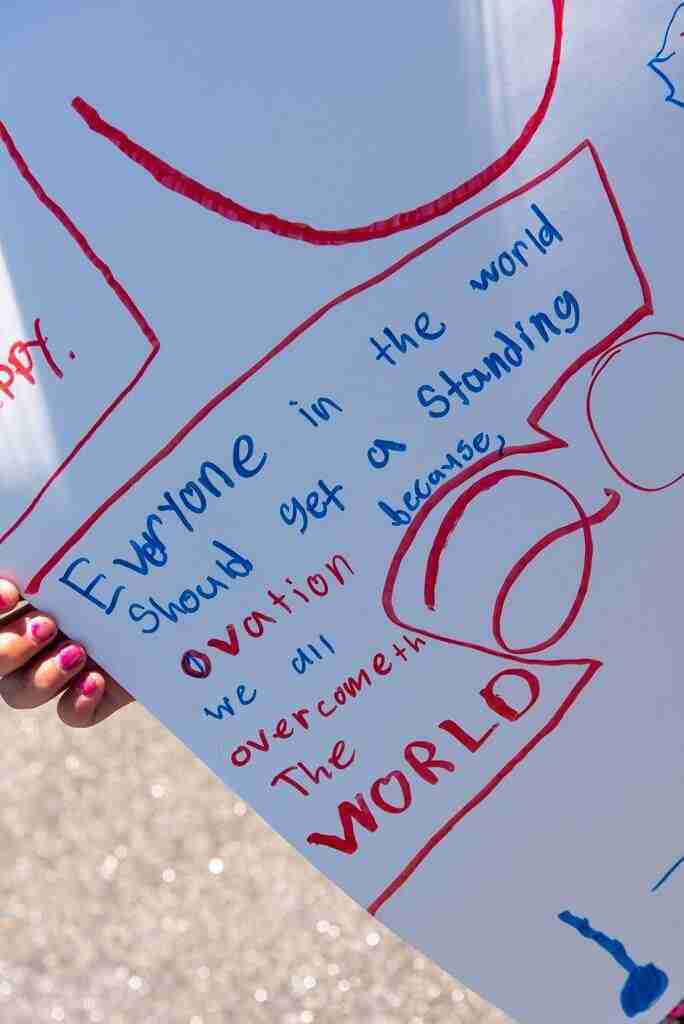 ppy.
Everyone in the world
Should get a Standing
ovation because,
we all
overcometh
The
WORLD